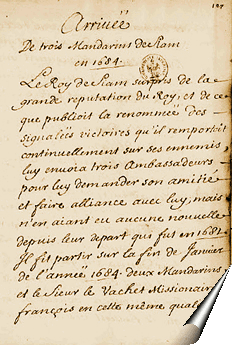 127
Arrivée
De trois Mandarins de Siam
en 1684.
Le Roy de Siam surpris de la
grande reputation du Roy, et de ce
que publioit la renommée des
signalés victoires qu'il remportoit
continuellement sur ses ennemis,
luy envoia trois Ambassadeurs
pour luy demander son amitié
et faire alliance avec luy, mais
n'en aiant eu aucune nouvelle
depuis leur depart qui fut en 1681.
Il fit partir sur la fin de Janvier
de l'année 1684. deux Mandarins
et le Sieur le Vachet Missionaire
françois en cette même qual